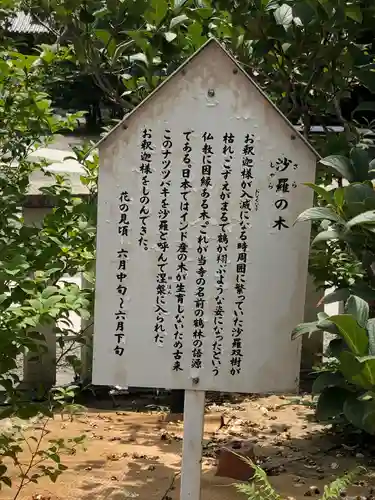 沙羅の木
さら
しゃら
お釈迦様が入滅になる時周囲に繁っていた沙羅双樹が
にゅうめつ
枯れ、こずえがまるで鶴が翔ぶような姿になったという
仏教に因縁がある木。これが当寺の名前の鶴林の語源
である。日本ではインド産の木が生育しないため古来
このナツツバキを沙羅と呼んで涅槃に入られた
ねはん
お釈迦様をしのんできた。
花の見頃 六月中旬〜六月下旬